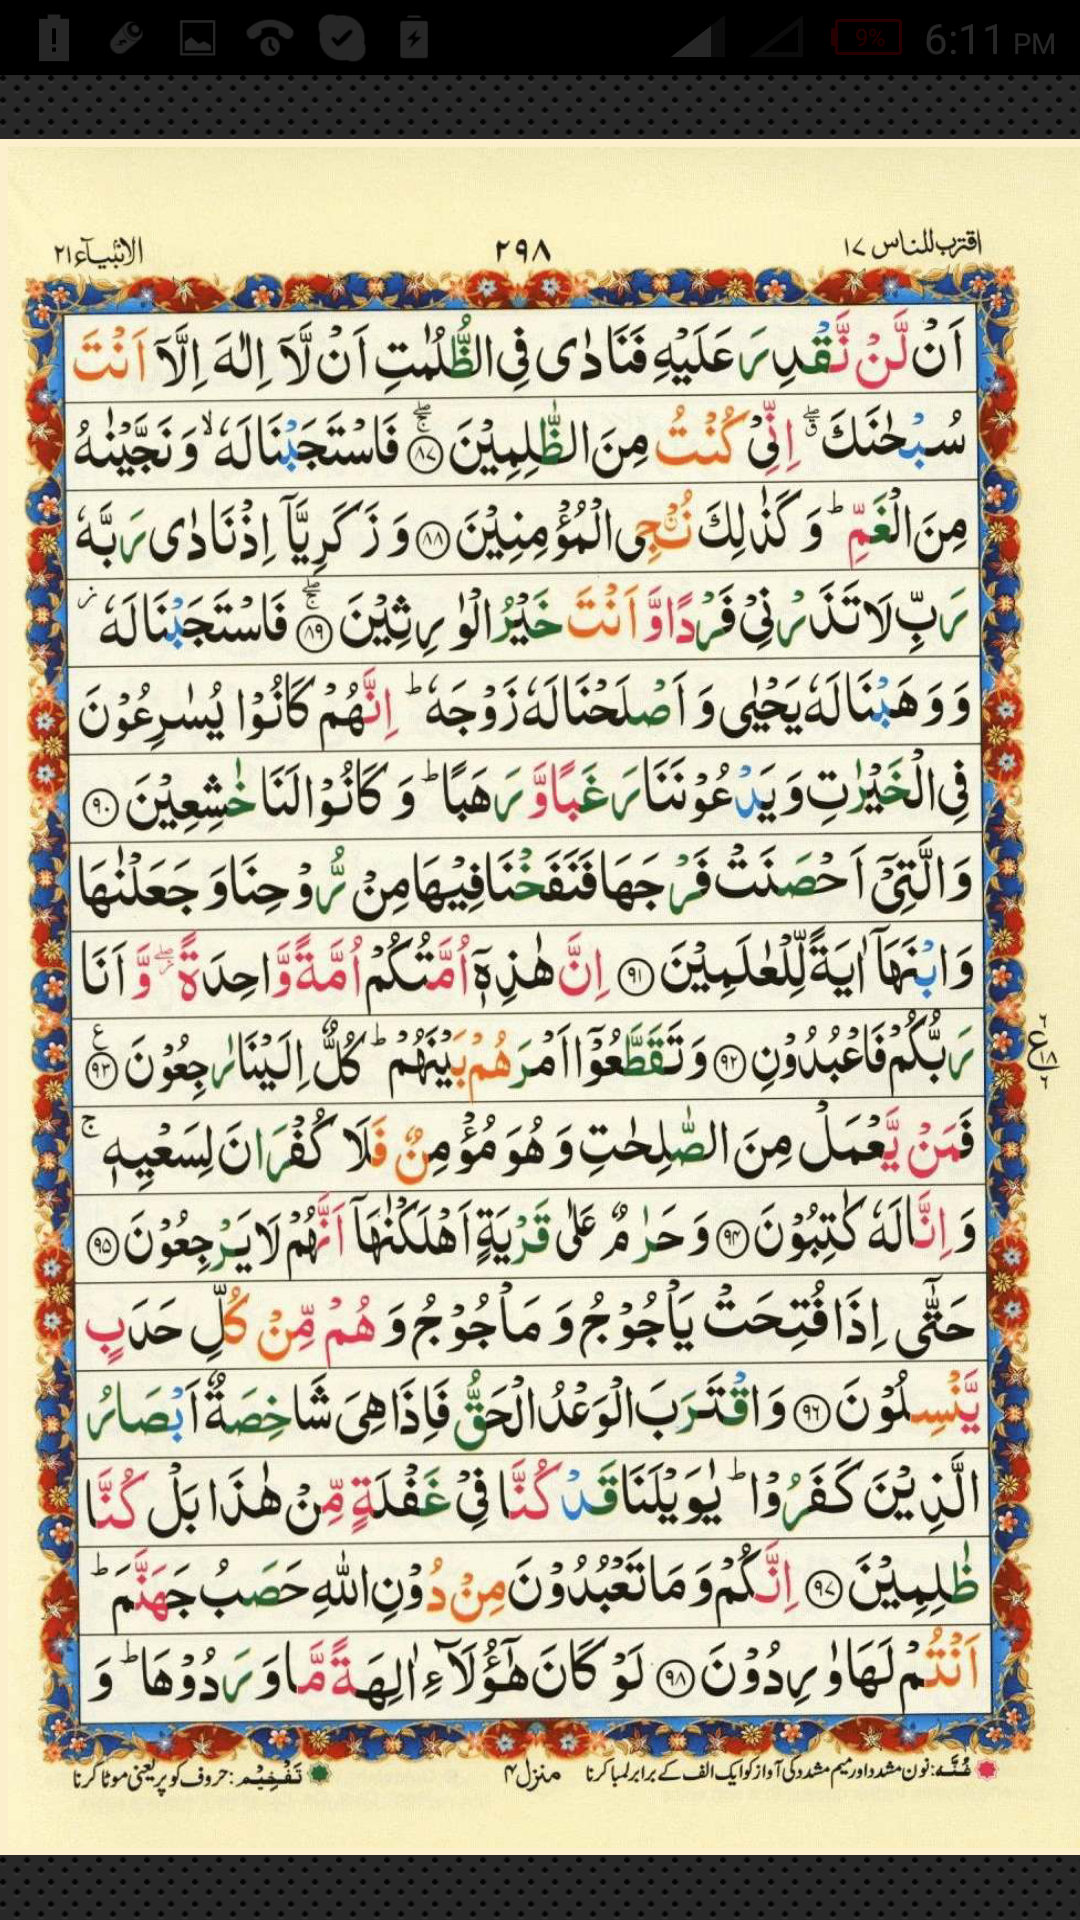 6:11 PM
9%
اقترب للناس ۱۷
۲۹۸
الانبیآء ۲۱
اَنْ لَّنْ نَّقْدِرَ عَلَیْهِ فَنَادٰى فِی الظُّلُمٰتِ اَنْ لَّاۤ اِلٰهَ اِلَّاۤ اَنْتَ
سُبْحٰنَكَ ۖۗ اِنِّیْ كُنْتُ مِنَ الظّٰلِمِیْنَ ۚۖ ﴿۸۷﴾ فَاسْتَجَبْنَا لَهٗ ۙ وَ نَجَّیْنٰهُ
مِنَ الْغَمِّ ؕ وَ كَذٰلِكَ نُـْۨجِی الْمُؤْمِنِیْنَ ﴿۸۸﴾ وَ زَكَرِیَّاۤ اِذْ نَادٰى رَبَّهٗ
رَبِّ لَا تَذَرْنِیْ فَرْدًا وَّ اَنْتَ خَیْرُ الْوٰرِثِیْنَ ۚۖ ﴿۸۹﴾ فَاسْتَجَبْنَا لَهٗ ؗ
وَ وَهَبْنَا لَهٗ یَحْیٰى وَ اَصْلَحْنَا لَهٗ زَوْجَهٗ ؕ اِنَّهُمْ كَانُوْا یُسٰرِعُوْنَ
فِی الْخَیْرٰتِ وَ یَدْعُوْنَنَا رَغَبًا وَّ رَهَبًا ؕ وَ كَانُوْا لَنَا خٰشِعِیْنَ ﴿۹۰﴾
وَ الَّتِیْۤ اَحْصَنَتْ فَرْجَهَا فَنَفَخْنَا فِیْهَا مِنْ رُّوْحِنَا وَ جَعَلْنٰهَا
وَ ابْنَهَاۤ اٰیَةً لِّلْعٰلَمِیْنَ ﴿۹۱﴾ اِنَّ هٰذِهٖۤ اُمَّتُكُمْ اُمَّةً وَّاحِدَةً ۖؗ وَّ اَنَا
رَبُّكُمْ فَاعْبُدُوْنِ ﴿۹۲﴾ وَ تَقَطَّعُوْۤا اَمْرَهُمْ بَیْنَهُمْ ؕ كُلٌّ اِلَیْنَا رٰجِعُوْنَ ﴿۹۳﴾ ع
۶ ع ۱۸ ۶
فَمَنْ یَّعْمَلْ مِنَ الصّٰلِحٰتِ وَ هُوَ مُؤْمِنٌ فَلَا كُفْرَانَ لِسَعْیِهٖ ۚ
وَ اِنَّا لَهٗ كٰتِبُوْنَ ﴿۹۴﴾ وَ حَرٰمٌ عَلٰى قَرْیَةٍ اَهْلَكْنٰهَاۤ اَنَّهُمْ لَا یَرْجِعُوْنَ ﴿۹۵﴾
حَتّٰۤى اِذَا فُتِحَتْ یَاْجُوْجُ وَ مَاْجُوْجُ وَ هُمْ مِّنْ كُلِّ حَدَبٍ
یَّنْسِلُوْنَ ﴿۹۶﴾ وَ اقْتَرَبَ الْوَعْدُ الْحَقُّ فَاِذَا هِیَ شَاخِصَةٌ اَبْصَارُ
الَّذِیْنَ كَفَرُوْا ؕ یٰوَیْلَنَا قَدْ كُنَّا فِیْ غَفْلَةٍ مِّنْ هٰذَا بَلْ كُنَّا
ظٰلِمِیْنَ ﴿۹۷﴾ اِنَّكُمْ وَ مَا تَعْبُدُوْنَ مِنْ دُوْنِ اللّٰهِ حَصَبُ جَهَنَّمَ ؕ
اَنْتُمْ لَهَا وٰرِدُوْنَ ﴿۹۸﴾ لَوْ كَانَ هٰۤؤُلَآءِ اٰلِهَةً مَّا وَرَدُوْهَا ؕ وَ
غُنَّه: نون مشدد اور میم مشدد کی آواز کو ایک الف کے برابر لمبا کرنا
منزل ۴
تَفْخِیْم: حروف کو پر یعنی موٹا کرنا